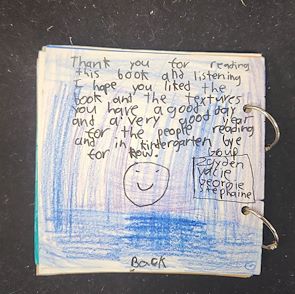 Thank you for reading
this book and listening
I hope you liked the
book and the textures
you have a good day
and a very good year
for the people reading
and in kindergarten bye
for now.
Zayden
Katie
Georgie
Stephaine
BACK